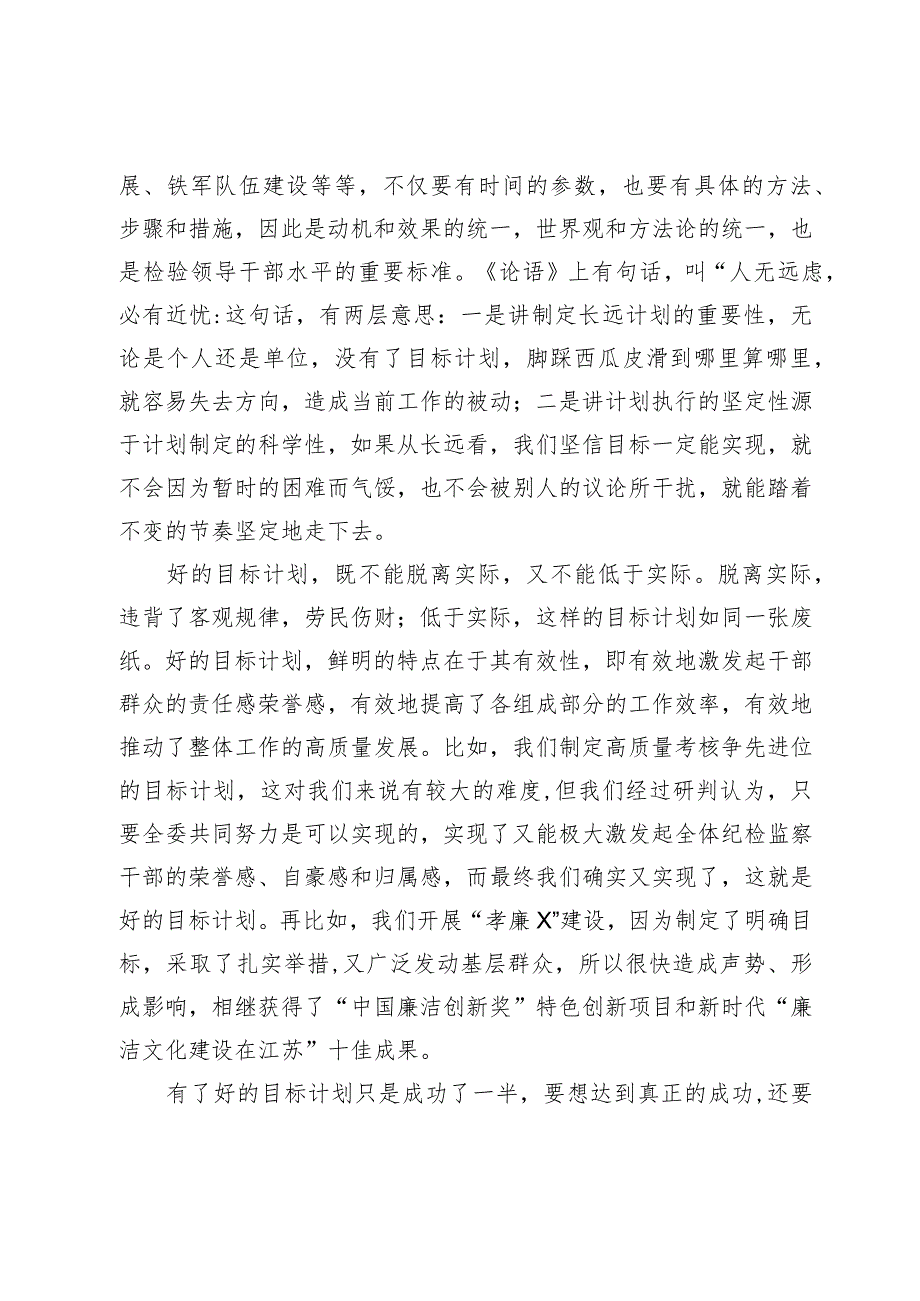 展、铁军队伍建设等等，不仅要有时间的参数，也要有具体的方法、
步骤和措施，因此是动机和效果的统一，世界观和方法论的统一，也
是检验领导干部水平的重要标准。《论语》上有句话，叫“人无远虑，
必有近忧:这句话，有两层意思：一是讲制定长远计划的重要性，无
论是个人还是单位，没有了目标计划，脚踩西瓜皮滑到哪里算哪里，
就容易失去方向，造成当前工作的被动；二是讲计划执行的坚定性源
于计划制定的科学性，如果从长远看，我们坚信目标一定能实现，就
不会因为暂时的困难而气馁，也不会被别人的议论所干扰，就能踏着
不变的节奏坚定地走下去。
好的目标计划，既不能脱离实际，又不能低于实际。脱离实际，
违背了客观规律，劳民伤财；低于实际，这样的目标计划如同一张废
纸。好的目标计划，鲜明的特点在于其有效性，即有效地激发起干部
群众的责任感荣誉感，有效地提高了各组成部分的工作效率，有效地
推动了整体工作的高质量发展。比如，我们制定高质量考核争先进位
的目标计划，这对我们来说有较大的难度,但我们经过研判认为，只
要全委共同努力是可以实现的，实现了又能极大激发起全体纪检监察
干部的荣誉感、自豪感和归属感，而最终我们确实又实现了，这就是
好的目标计划。再比如，我们开展“孝廉X”建设，因为制定了明确目
标，采取了扎实举措,又广泛发动基层群众，所以很快造成声势、形
成影响，相继获得了“中国廉洁创新奖”特色创新项目和新时代“廉
洁文化建设在江苏”十佳成果。
有了好的目标计划只是成功了一半，要想达到真正的成功,还要